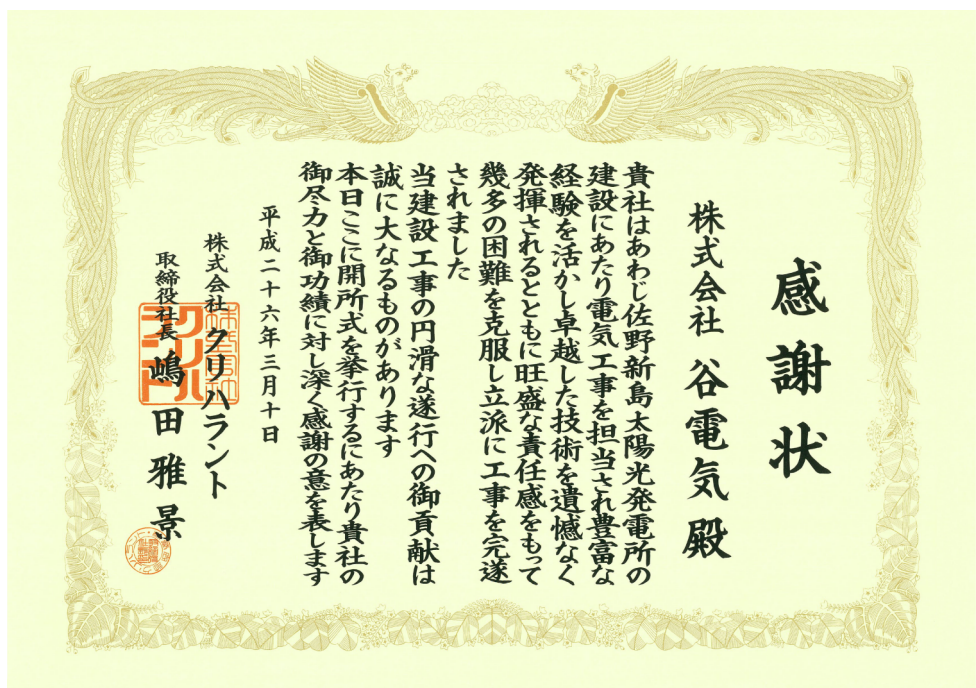 感謝状
株式会社 谷電気 殿
貴社はあわじ佐野新島太陽光発電所の
建設にあたり電気工事を担当され豊富な
経験を活かし卓越した技術を遺憾なく
発揮されるとともに旺盛な責任感をもって
幾多の困難を克服し立派に工事を完遂
されました
当建設工事の円滑な遂行への御貢献は
誠に大なるものがあります
本日ここに開所式を挙行するにあたり貴社の
御尽力と御功績に対し深く感謝の意を表します
平成二十六年三月十日
株式会社 クリハラント
取締役社長 嶋田雅景